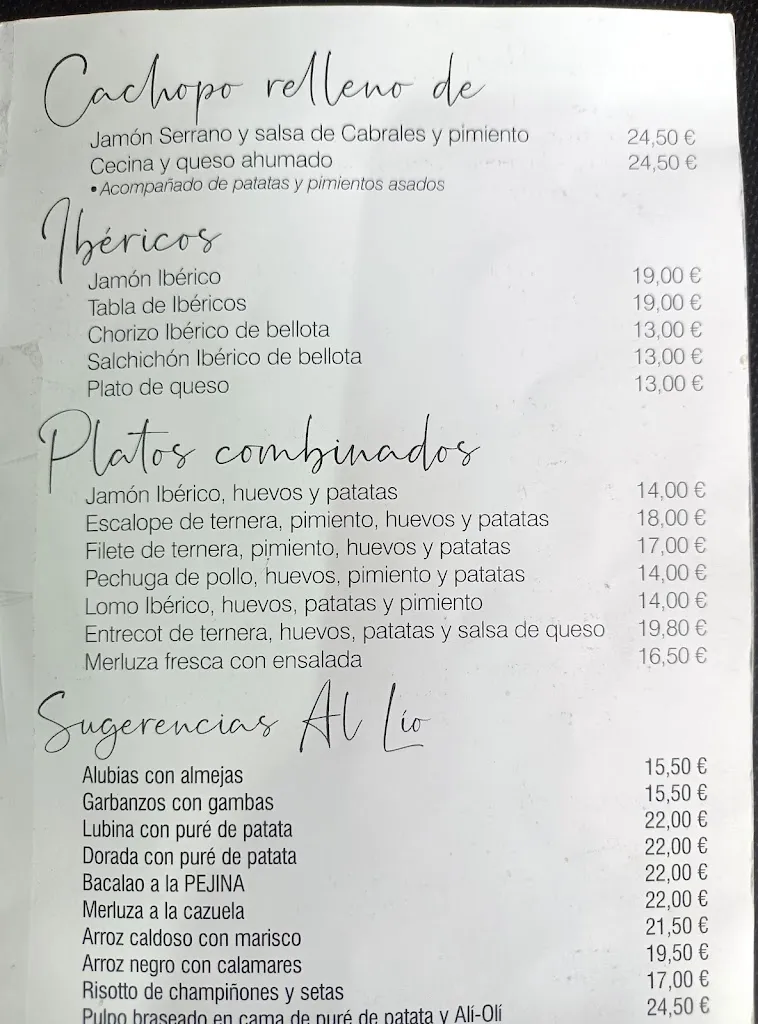 Cachopo relleno de
Jamón Serrano y salsa de Cabrales y pimiento 24,50 €
Cecina y queso ahumado 24,50 €
• Acompañado de patatas y pimientos asados
Ibéricos
Jamón Ibérico 19,00 €
Tabla de Ibéricos 19,00 €
Chorizo Ibérico de bellota 13,00 €
Salchichón Ibérico de bellota 13,00 €
Plato de queso 13,00 €
Platos combinados
Jamón Ibérico, huevos y patatas 14,00 €
Escalope de ternera, pimiento, huevos y patatas 18,00 €
Filete de ternera, pimiento, huevos y patatas 17,00 €
Pechuga de pollo, huevos, pimiento y patatas 14,00 €
Lomo Ibérico, huevos, patatas y pimiento 14,00 €
Entrecot de ternera, huevos, patatas y salsa de queso 19,80 €
Merluza fresca con ensalada 16,50 €
Sugerencias Al Lío
Alubias con almejas 15,50 €
Garbanzos con gambas 15,50 €
Lubina con puré de patata 22,00 €
Dorada con puré de patata 22,00 €
Bacalao a la PEJINA 22,00 €
Merluza a la cazuela 22,00 €
Arroz caldoso con marisco 21,50 €
Arroz negro con calamares 19,50 €
Risotto de champiñones y setas 17,00 €
Pulpo braseado en cama de puré de patata y Alí-Olí 24,50 €